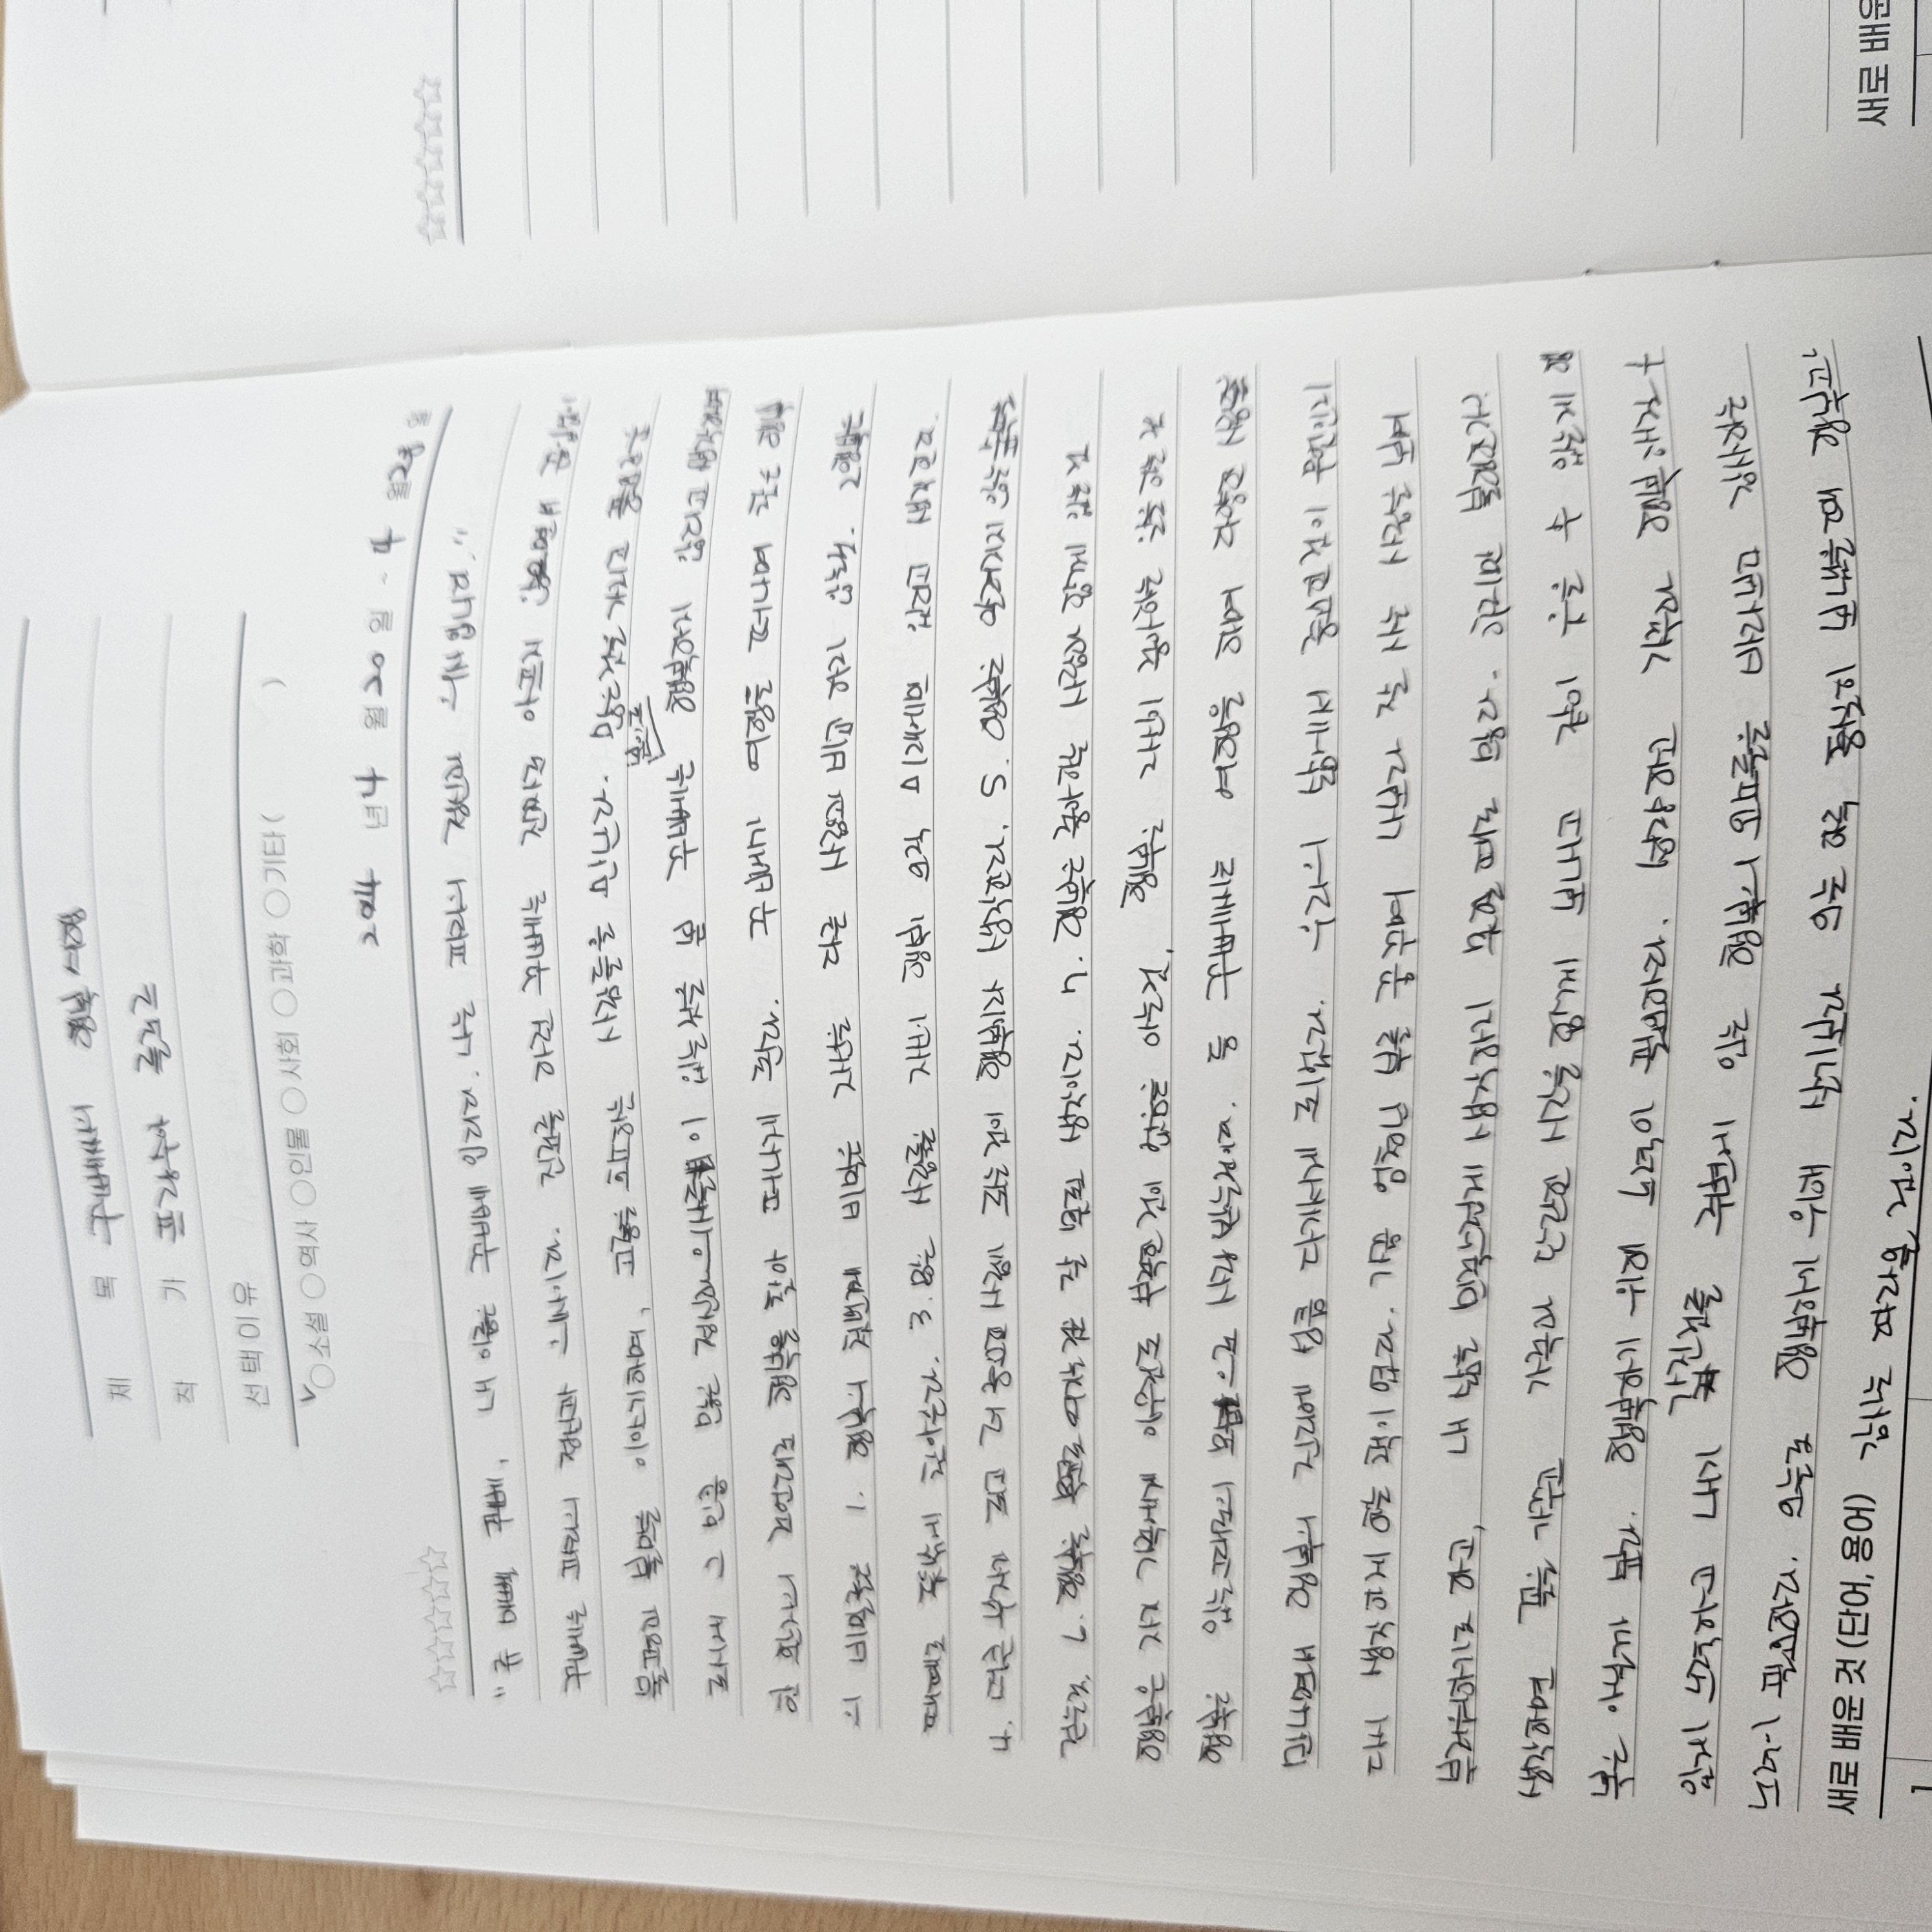 제 목 꾸뻬씨의 행복 여행
작 가 프랑수아 를로르
선택이유
소설 역사 인물 사회 과학 기타 ( )
년 4 월 20 일 ~ 4 월 일
내 이름은 꾸뻬 입니다. 나는 파리의 정신과 의사입니다."
꾸뻬는 파리의 정신과 의사이다. 진료를 하던 꾸뻬는 진짜로 아프지 않으면서 끊임없이
불평과 불만을 이야기하며, 고통을 호소하는 사람들을 만난다. 많은것을 가지고
그 만큼 많은 정신과의사들이 있는것을 본 꾸뻬는 본인도 행복하지 않다고 생각하며
한 환자의 조언대로 행복을 찾아 떠나게 된다. 꾸뻬가 여행을 떠나며 찾은 행복
의 비밀들은 1. 행복의 첫번째 비밀은 자신을 다른 사람과 비교 하지 않는것. 2 행복은
때때로 뜻밖에 찾아온다. 3. 많은 사람들은 자신의 행복이 오직 미래에만 있다고 생각한다.
4. 더큰 부자가 되고 더 중요한 사람이 되는것이 행복이라 생각한다. 5. 행복은 알려지지 않은
걷는것. 6. 행복을 목표로 여기는것은 잘 못된 생각이다. 7. 행복은 좋아하는 사람과 함께 있는것
행복은 자기 가족에게 아무것도 부족한 것이 없음을 아는것, 행복은 자신이 좋아하는 일을 하는것
행복은 있는그대로의 모습으로 사랑 받는것이다. 등 꾸뻬씨는 여행을 하며 다양한 사람들
만나면서 행복의 진리에 성큼 다가서게 되었다. 우리의 삶에서 중요한것이 무엇인지
다시 생각하게 하는 책이 였다. 가끔 엄청난 부를 꿈꾸며 나보다 잘 사는 사람을 보며
부러워하기도 하고, 내 삶을 만족스럽게 생각하지 못할 때도 많다. 하지만
생각하면 꽃을 가꾸고 가족과 단란한 시간을 함께 보내고 같이 웃을 수 있는게 행
복은 아닐까 싶다. 행복하기 위해 노력이 필요하다. 가족과 행복해질 수
있게 노력하고 내가 가진것들 주변에 있는 행복의 요소들을 바라보고 감사하는
노력이 필요하다. 오늘도 행복하기 위해 살기보다 오늘 하루 충실히 보냈을때 행복과
감사는 따라올 것이다.
새로 배운 것 (단어, 용어)
1
새로 배운